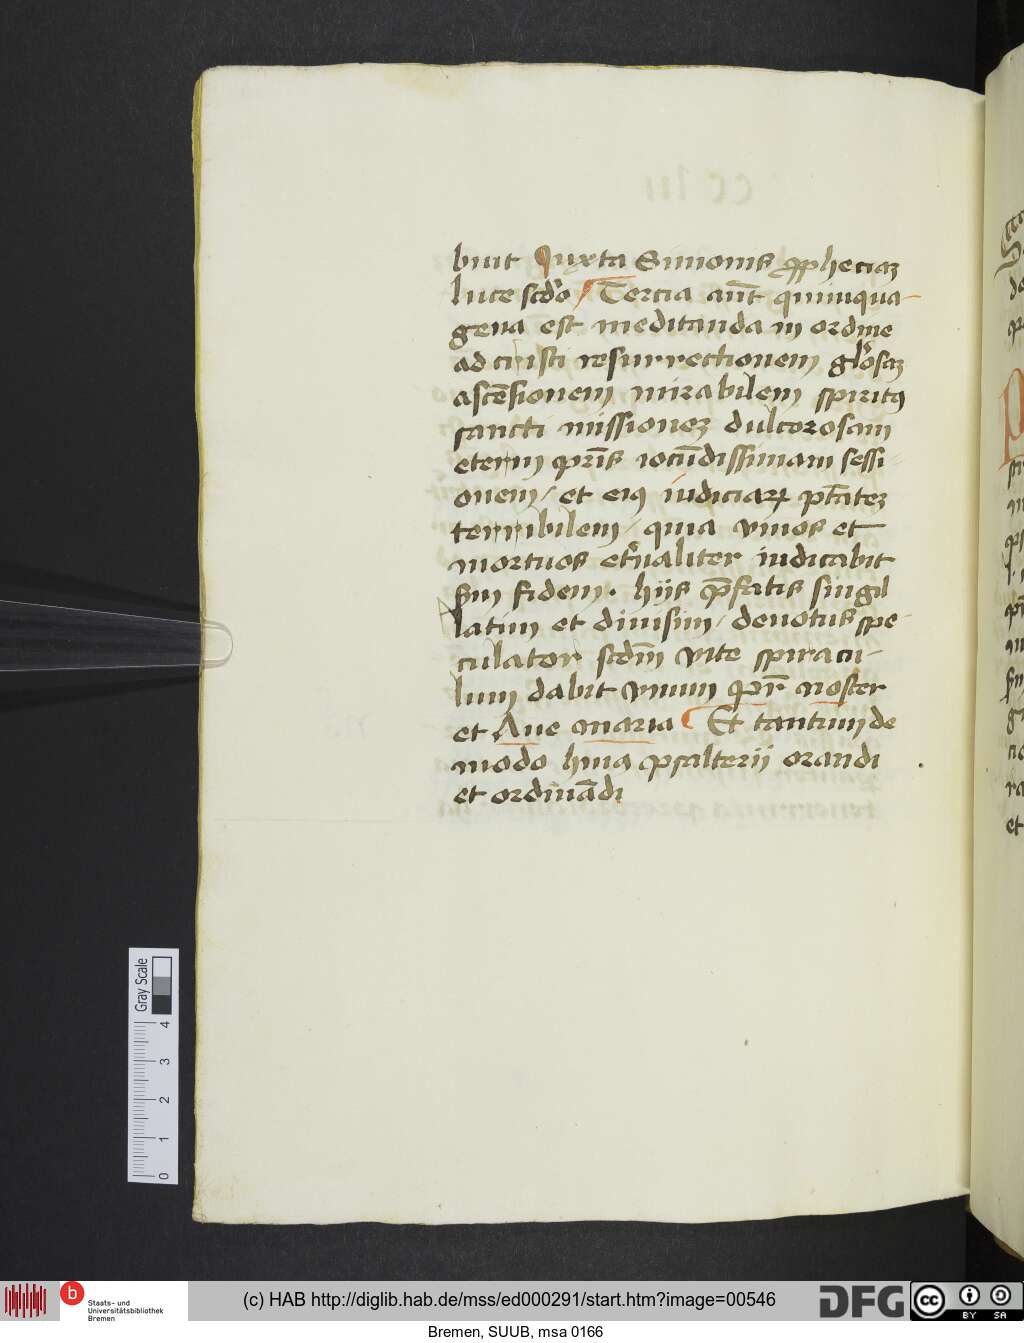 biut Juxta Simonis ꝓpheciaꝫ
luce scd̓o Tercia aut̄ quinqua-
gena est meditanda in ordine
ad cristi resurrectionem gl̓osaꝫ
asce̅sionem mirabilem spiritꝰ
sancti missioneꝫ dulcorosam
eterni pr̅is iocu̅dissimam sessi-
onem / et eiꝰ iudiciaꝝ pt̅ateꝫ
terribilem / quia viuos et
mortuos et̓naliter iudicabit
fm̅ fidem . hijs p̅fatis singil
latim et diuisim / deuotus spe-
culator scd̅m vite spiracu-
lum dabit vnum pr̅ noster
et Aue maria Et tantum de
modo huiꝰ psalterij orandi
et ordina̅di
Gray Scale
0 1 2 3 4
b
Staats- und
Universitätsbibliothek
Bremen
(c) HAB http://diglib.hab.de/mss/ed000291/start.htm?image=00546
DFG
cc BY SA
Bremen, SUUB, msa 0166